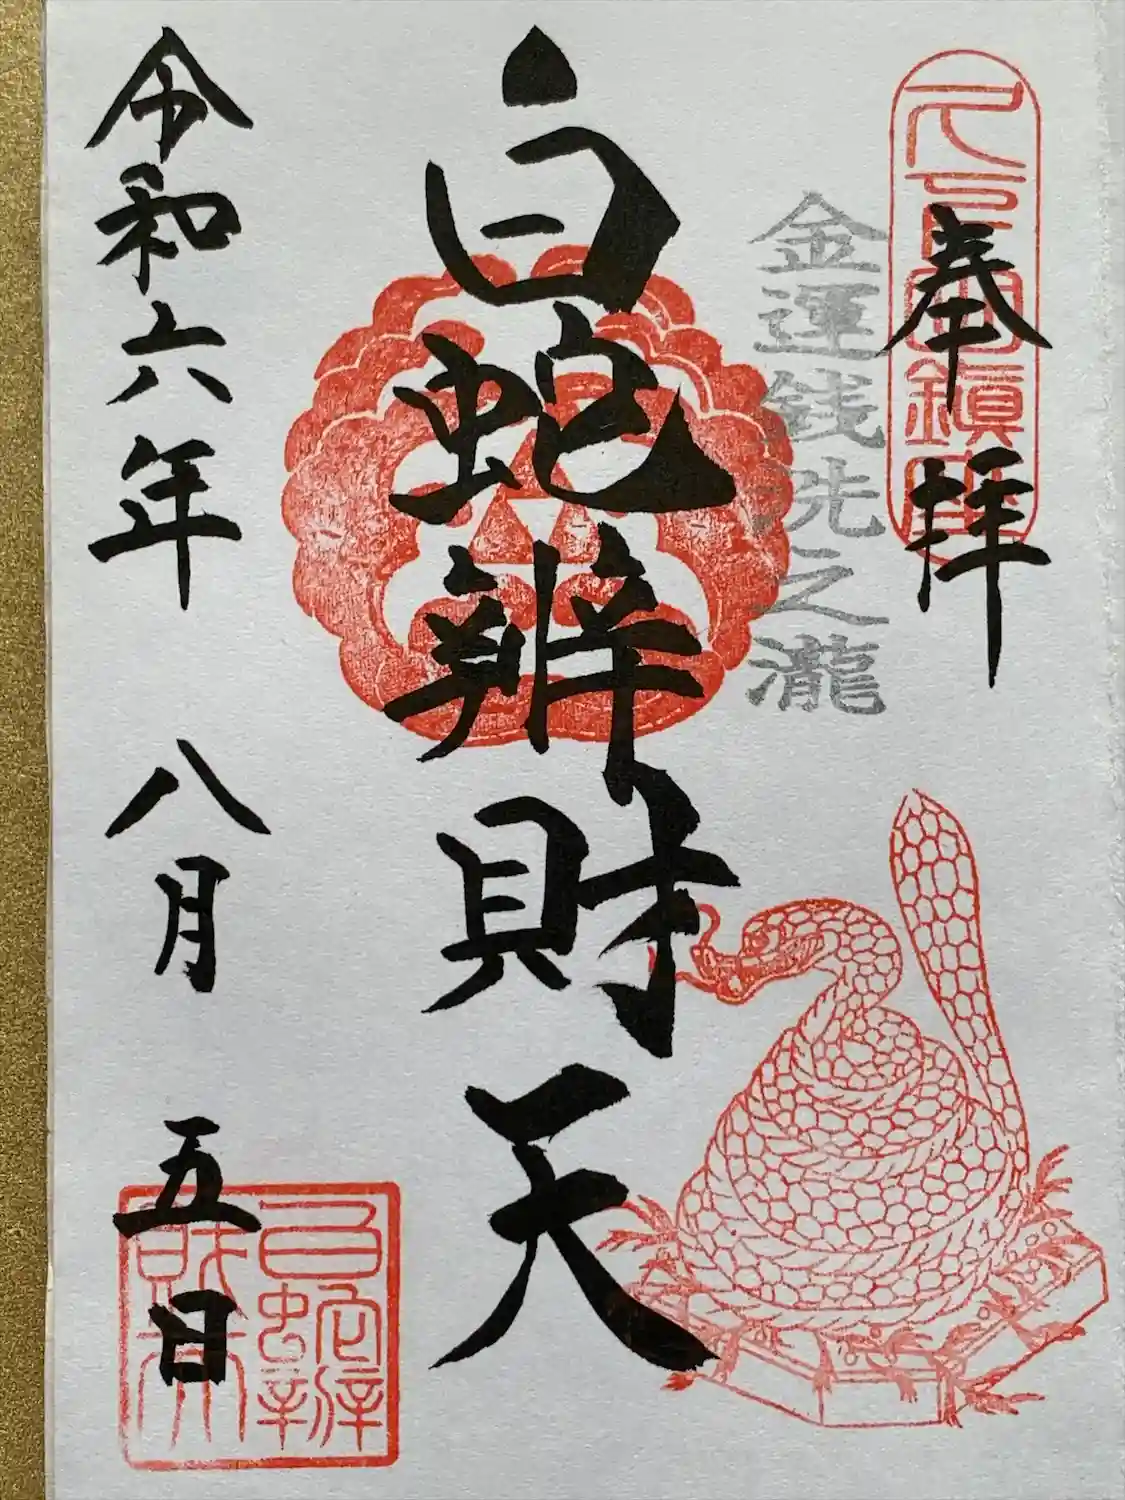 奉拝
金運銭洗之瀧
白蛇辨財天
令和六年 八月 五日
白蛇辨財天